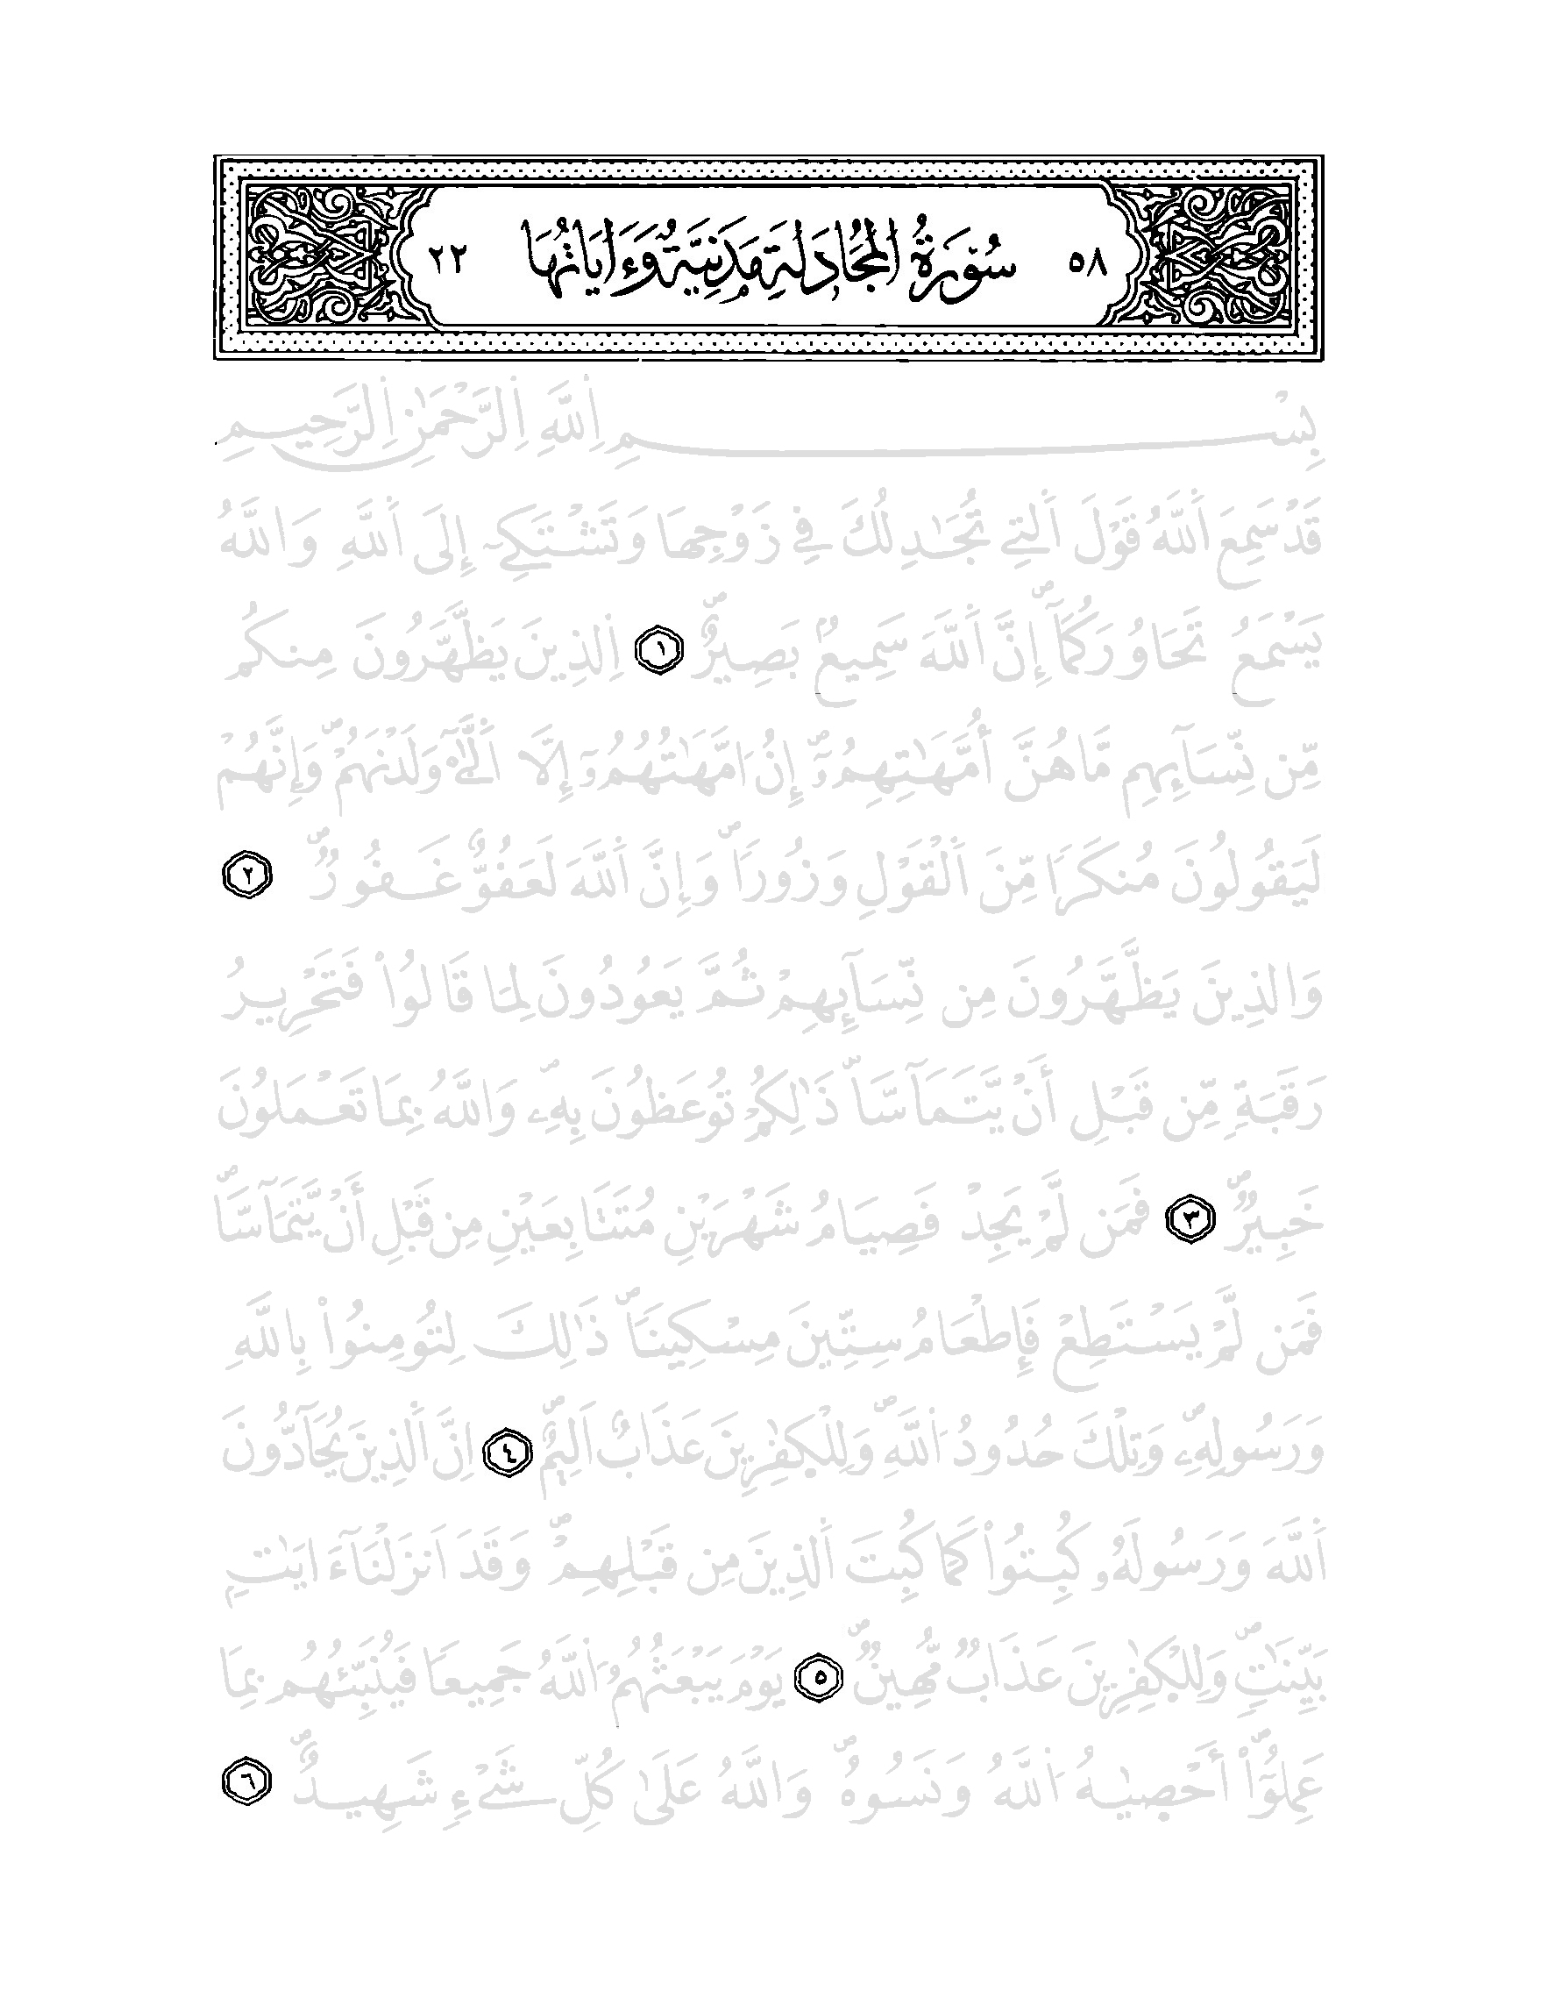 ٥٨ سُورَةُ اَ۬لْمُجَادَلَةِ مَدَنِيَّةٌ وَءَايَاتُهَا ٢٢
بِسْمِ اِ۬للَّهِ اِ۬لرَّحْمَٰنِ اِ۬لرَّحِيمِ
قَدْ سَمِعَ اَ۬للَّهُ قَوْلَ اَ۬لتِے تُجَٰدِلُكَ فِے زَوْجِهَا وَتَشْتَكِےٓ إِلَى اَ۬للَّهِ وَاللَّهُ
يَسْمَعُ تَحَاوُرَكُمَآۖ إِنَّ اَ۬للَّهَ سَمِيعُۢ بَصِيرٌۖ ١ اِ۬لذِينَ يَظَّهَّرُونَ مِنكُم
مِّن نِّسَآئِهِم مَّا هُنَّ أُمَّهَٰتِهِمُۥٓۖ إِنُ ا۟مَّهَٰتُهُمُۥٓ إِلَّا اَ۬لَّٰٓـِٔے وَلَدْنَهُمْۖ وَإِنَّهُمْ
لَيَقُولُونَ مُنكَراٗ مِّنَ اَ۬لْقَوْلِ وَزُوراٗۖ وَإِنَّ اَ۬للَّهَ لَعَفُوٌّ غَفُورٞۖ ٢
وَالذِينَ يَظَّهَّرُونَ مِن نِّسَآئِهِمْ ثُمَّ يَعُودُونَ لِمَا قَالُواْ فَتَحْرِيرُ
رَقَبَةٖ مِّن قَبْلِ أَنْ يَّتَمَآسَّاۖ ذَٰلِكُمْ تُوعَظُونَ بِهِۦۖ وَاللَّهُ بِمَا تَعْمَلُونَ
خَبِيرٞۖ ٣ فَمَن لَّمْ يَجِدْ فَصِيَامُ شَهْرَيْنِ مُتَتَابِعَيْنِ مِن قَبْلِ أَنْ يَّتَمَآسَّاۖ
فَمَن لَّمْ يَسْتَطِعْ فَإِطْعَامُ سِتِّينَ مِسْكِيناٗۖ ذَٰلِكَ لِتُومِنُواْ بِاللَّهِ
وَرَسُولِهِۦۖ وَتِلْكَ حُدُودُ اُ۬للَّهِۖ وَلِلْكٰ۪فِرِينَ عَذَابٌ اَلِيمٌۖ ٤ اِنَّ اَ۬لذِينَ يُحَآدُّونَ
اَ۬للَّهَ وَرَسُولَهُۥ كُبِتُواْ كَمَا كُبِتَ اَ۬لذِينَ مِن قَبْلِهِمْۖ وَقَدَ اَنزَلْنَآ ءَايَٰتِۢ
بَيِّنَٰتٖۖ وَلِلْكٰ۪فِرِينَ عَذَابٞ مُّهِينٞۖ ٥ يَوْمَ يَبْعَثُهُمُ اُ۬للَّهُ جَمِيعاٗ فَيُنَبِّئُهُم بِمَا
عَمِلُوٓاْۖ أَحْص۪يٰهُ اُ۬للَّهُ وَنَسُوهُۖ وَاللَّهُ عَلَىٰ كُلِّ شَےْءٖ شَهِيدٌۖ ٦